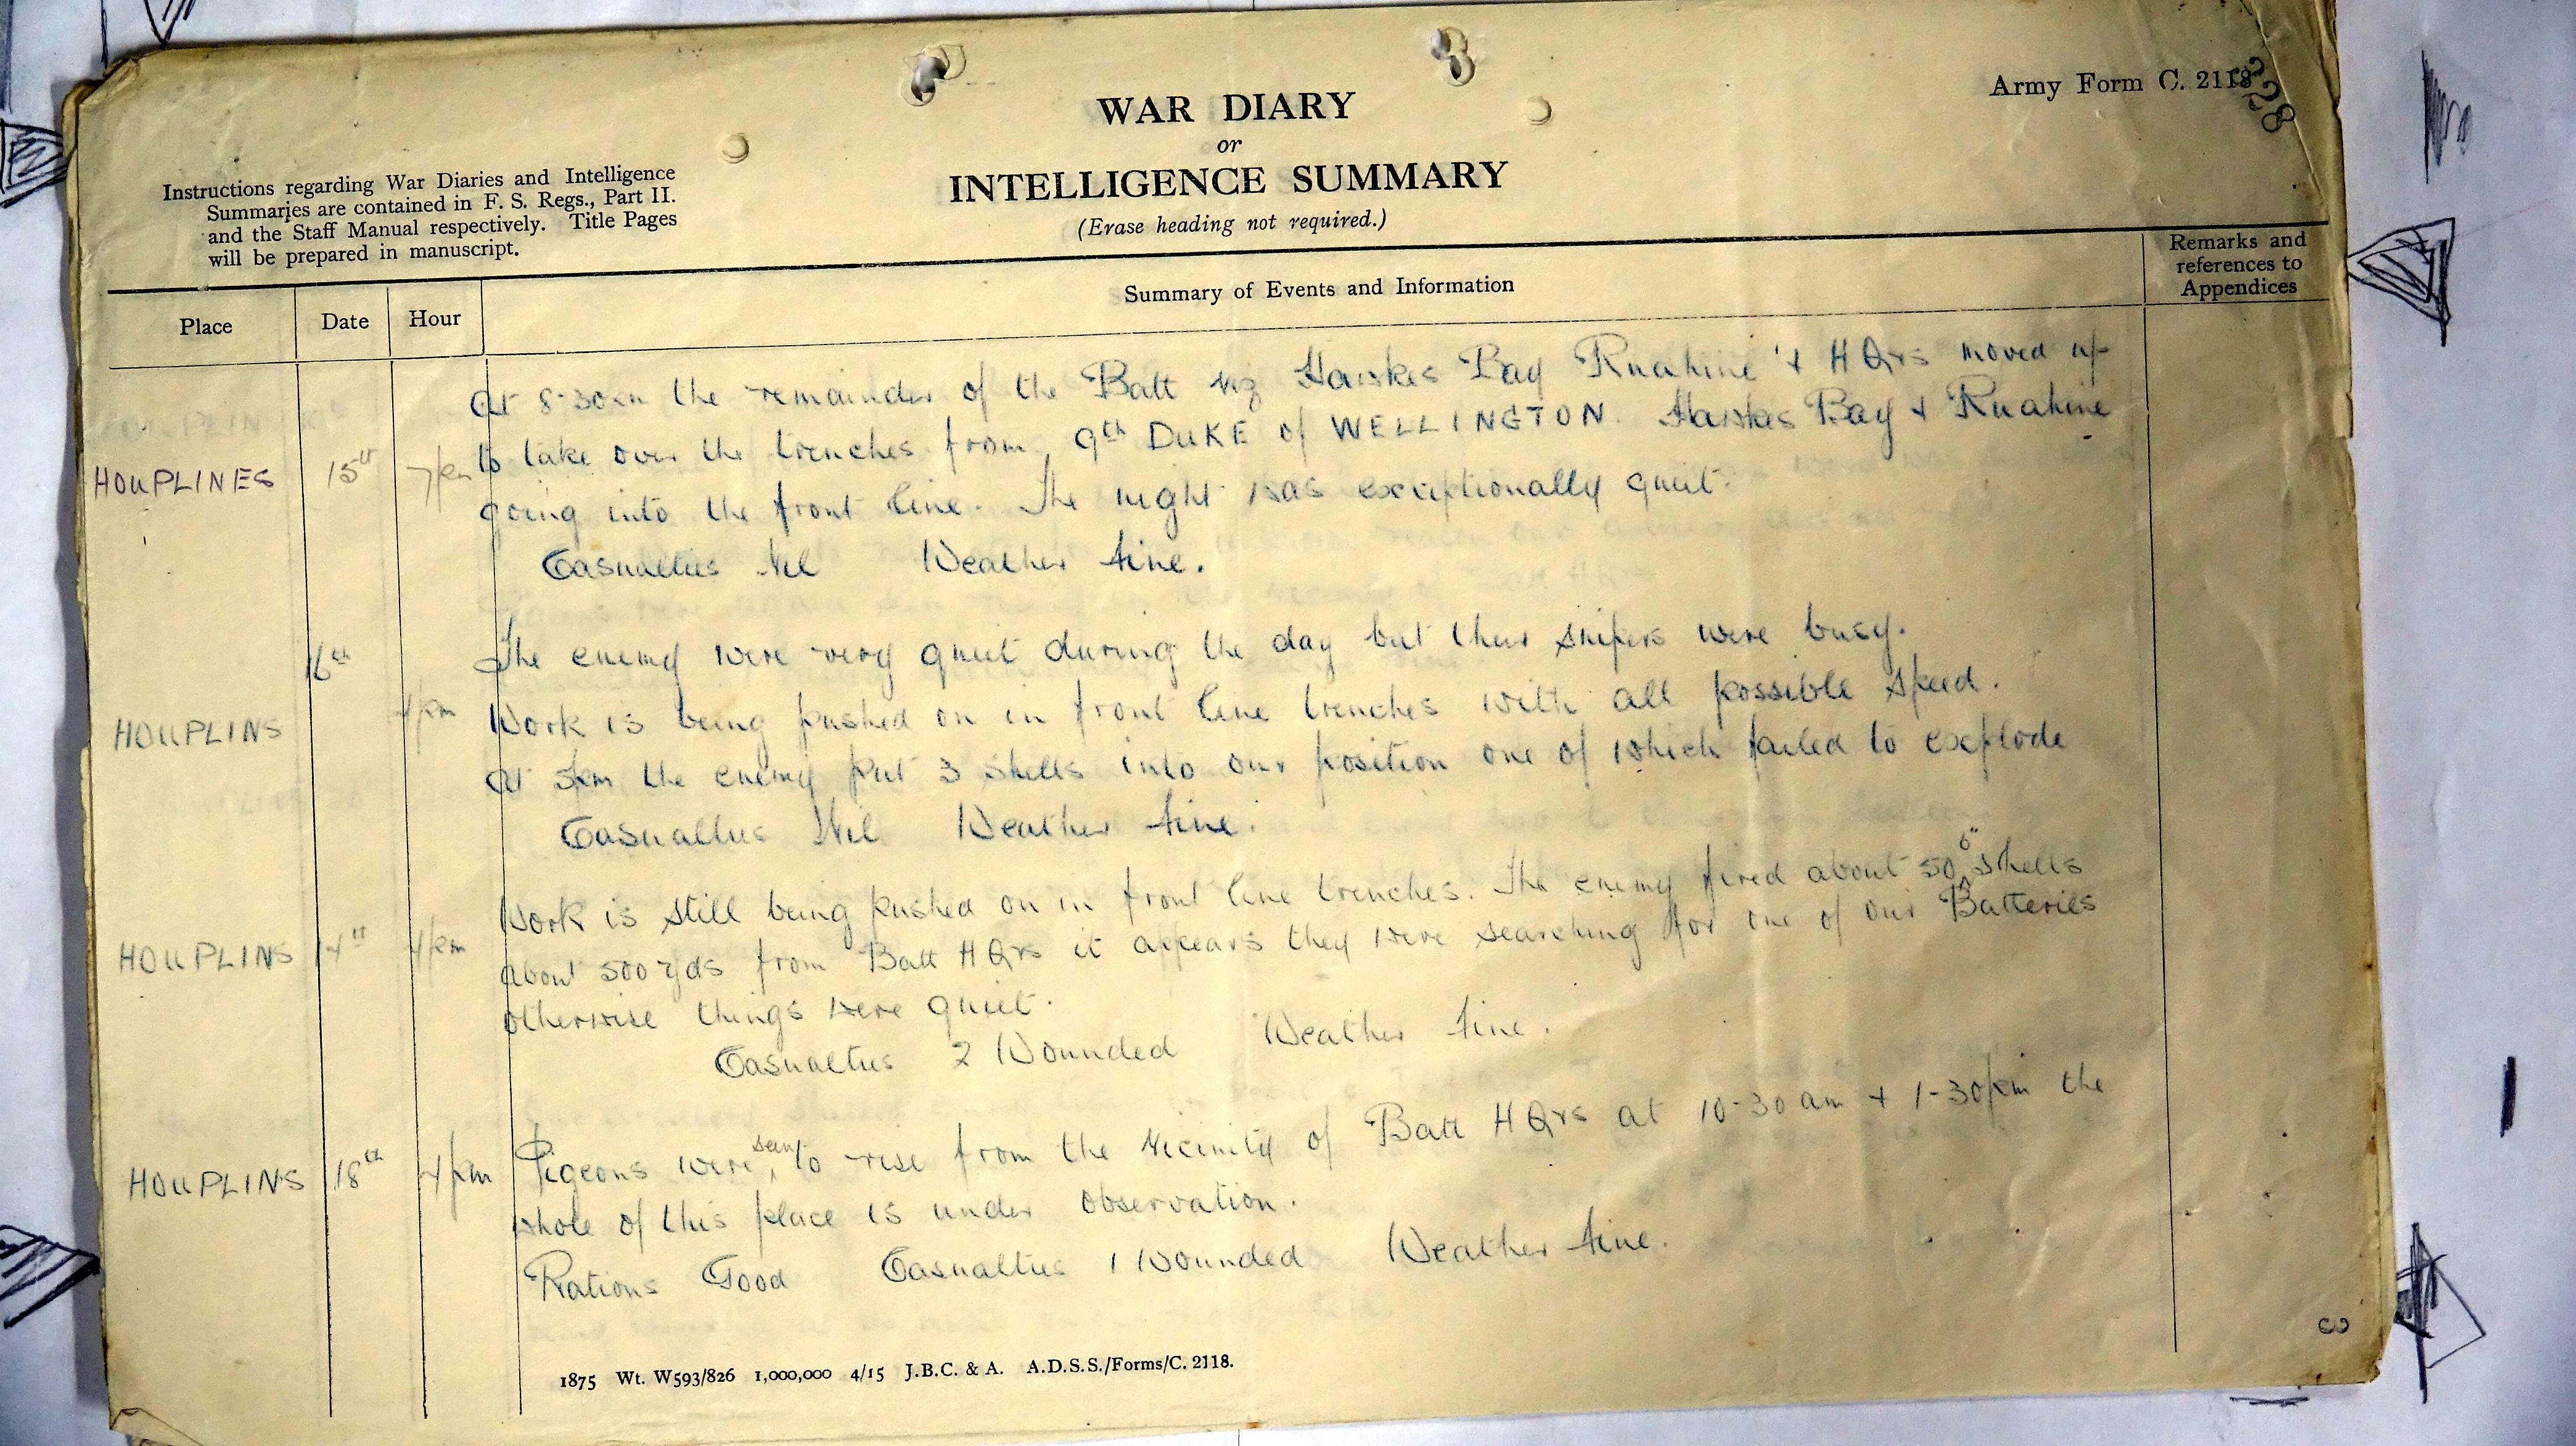 Army Form C. 2118
328
WAR DIARY
or
INTELLIGENCE SUMMARY
(Erase heading not required.)
Instructions regarding War Diaries and Intelligence
Summaries are contained in F. S. Regs., Part II.
and the Staff Manual respectively. Title Pages
will be prepared in manuscript.
Place Date Hour Summary of Events and Information Remarks and
references to
Appendices
At 8-30 the remainder of the Batt viz Hawkes Bay Ruahine & HQrs moved up
to take over the trenches from 9th DUKE of WELLINGTON. Hawkes Bay & Ruahine
HOUPLINES 15th 7pm
going into the front line. The night was exceptionally quiet.
Casualties Nil Weather fine.
16th The enemy were very quiet during the day but their snipers were busy.
HOUPLINS 4pm Work is being pushed on in front line trenches with all possible speed.
At 5pm the enemy put 3 shells into our position one of which failed to explode
Casualties Nil Weather fine.
Work is still being pushed on in front line trenches. The enemy fired about 50 6" shells
HOUPLINS 17th 4pm about 500 yds from Batt HQrs it appears they were searching for one of our Batteries
otherwise things were quiet.
Casualties 2 Wounded Weather fine.
HOUPLINS 18th 4pm Pigeons were seen to rise from the vicinity of Batt HQrs at 10-30 am & 1-30pm the
whole of this place is under observation.
Rations Good Casualties 1 Wounded Weather fine.
3
1875 Wt. W593/826 1,000,000 4/15 J.B.C. & A. A.D.S.S./Forms/C. 2118.